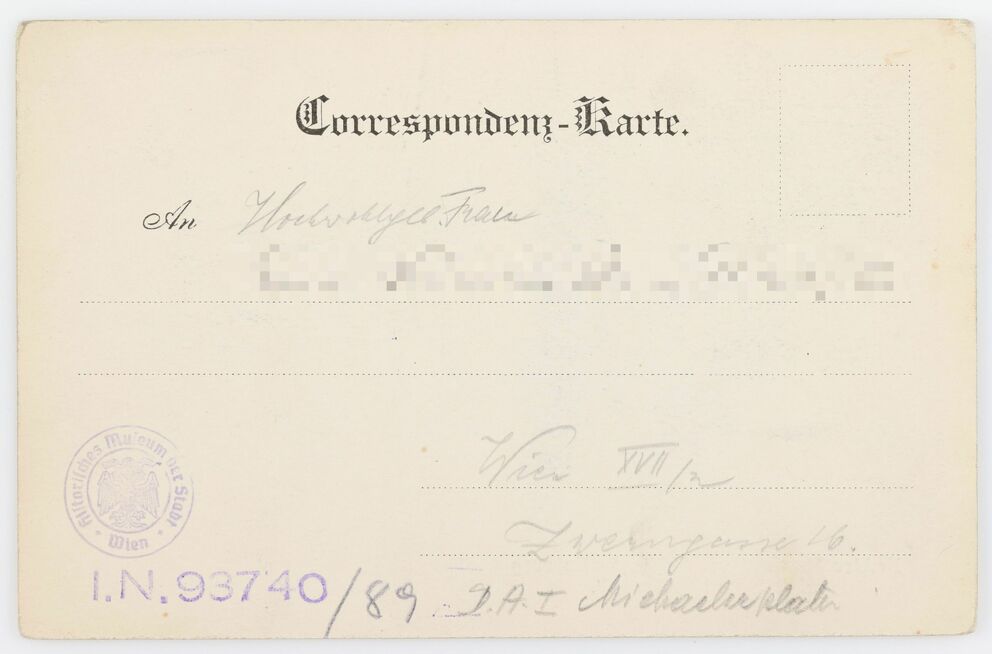 Correspondenz-Karte.
An Hochwohlgeb. Frau
Wien XVII/2
16.
Historisches Museum der Stadt Wien
I.N. 93740/89
I Michaelerplatz